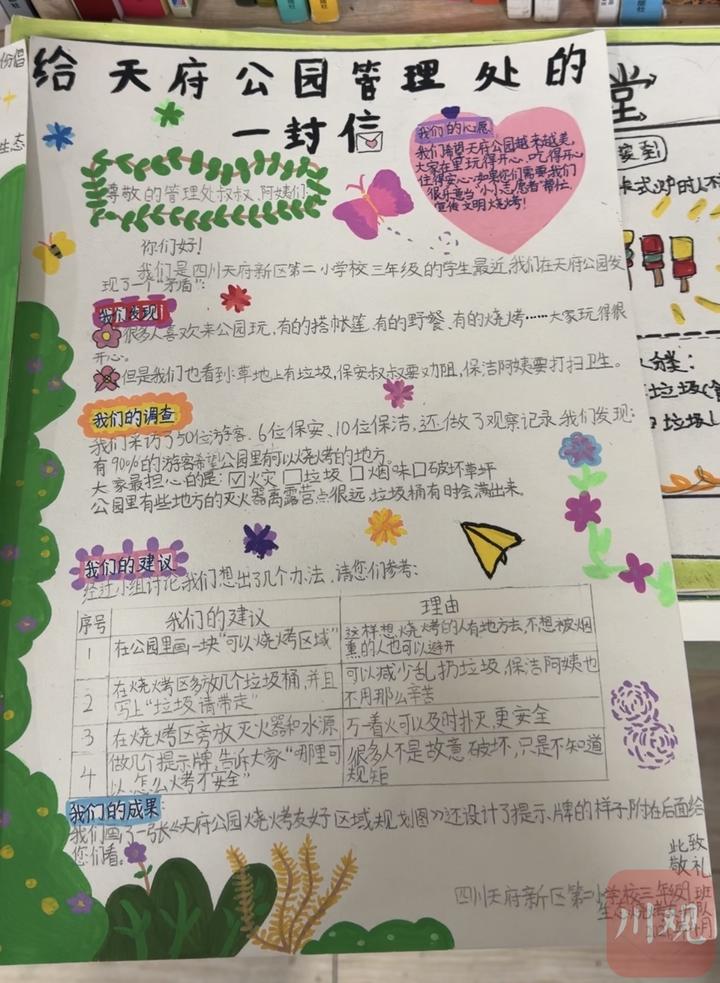 给天府公园管理处的
一封信
我们的心愿
我们希望天府公园越来越美,
大家在里玩得开心,吃得开心
住得安心.如果你们需要,我们
很乐意当“小小志愿者”帮忙
宣传文明烧烤!
尊敬的管理处叔叔、阿姨们:
你们好!
我们是四川天府新区第二小学校三年级的学生最近,我们在天府公园发
现了一个“矛盾”:
我们发现
很多人喜欢来公园玩,有的搭帐篷、有的野餐、有的烧烤……大家玩得很
开心。
但是我们也看到:草地上有垃圾,保安叔叔要劝阻,保洁阿姨要打扫卫生。
我们的调查
我们采访了50位游客、6位保安、10位保洁,还做了观察记录.我们发现:
有90%的游客希望公园里有可以烧烤的地方。
大家最担心的是:☑火灾 □垃圾 □烟味 □破坏草坪
公园里有些地方的灭火器离露营点很远.垃圾桶有时会满出来。
我们的建议
经过小组讨论,我们想出了几个办法,请您们参考:
序号 我们的建议 理由
1 在公园里画一块“可以烧烤区域” 这样想烧烤的人有地方去,不想被烟
熏的人也可以避开
2 在烧烤区多放几个垃圾桶,并且
写上“垃圾请带走” 可以减少乱扔垃圾,保洁阿姨也
不用那么辛苦
3 在烧烤区旁放灭火器和水源 万一着火可以及时扑灭,更安全
4 做几个提示牌,告诉大家“哪里可
以、怎么烤不安全” 很多人不是故意破坏,只是不知道
规矩
我们的成果:
我们画了一张《天府公园烧烤友好区域规划图》还设计了提示牌的样子,附在后面给
您们看。
此致
敬礼
四川天府新区第二小学校三年级
川观
份倡
生态
堂
卡式炉时人不
分类:
垃圾